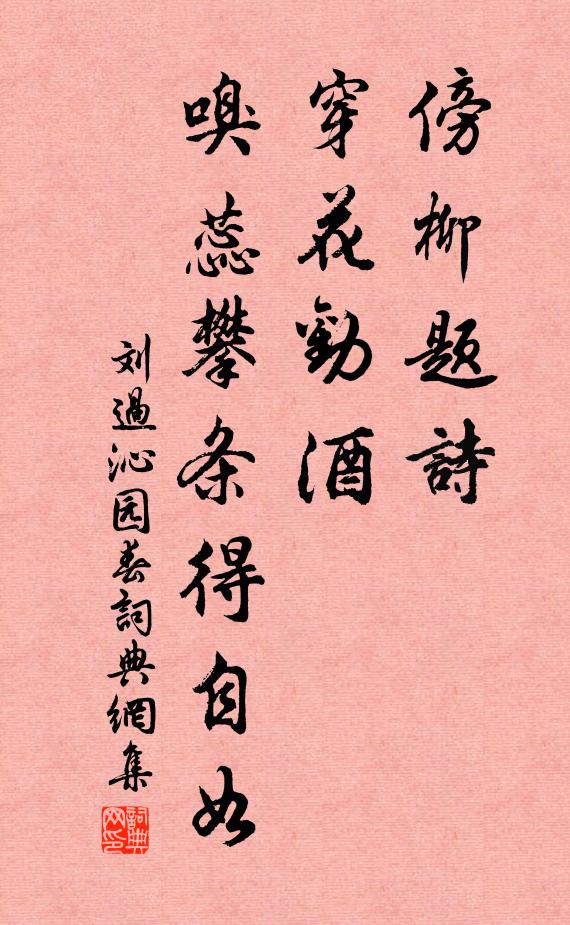 傍柳题詩
穿花勸酒
嗅蕊攀条得自如
刘過沁园春詞典網集
詞典网印